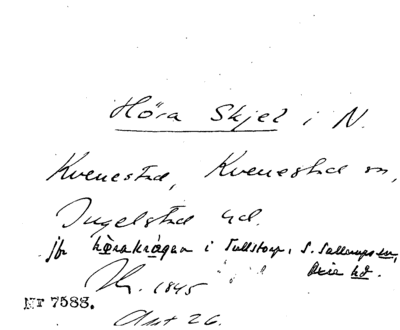 Höra Skjel i N.
Kvenestad, Kvenestad sn,
Ingelstad hd.
jfr hörakrågen i Tullstorp, S. Sallerups sn,
Oxie hd.
1845
Nr 7588.
26.